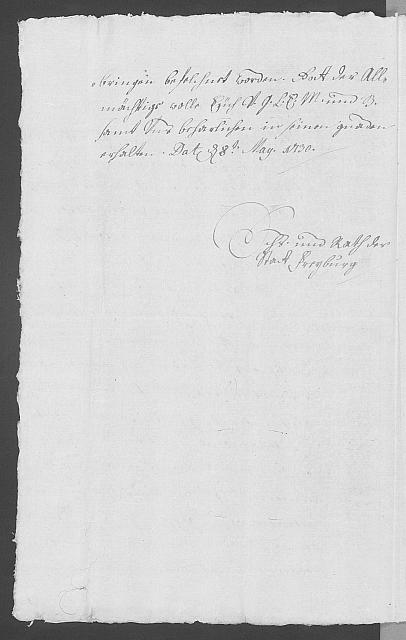 bringen bezeichnet worden. Gott der All-
mächtige wolle Euch V. G. L. E. M. und B.
samt Uns beharrlichen in seinen gnaden
erhalten. Dat. d. 8t. May. 1730.
und Rath der
Statt Freyburg